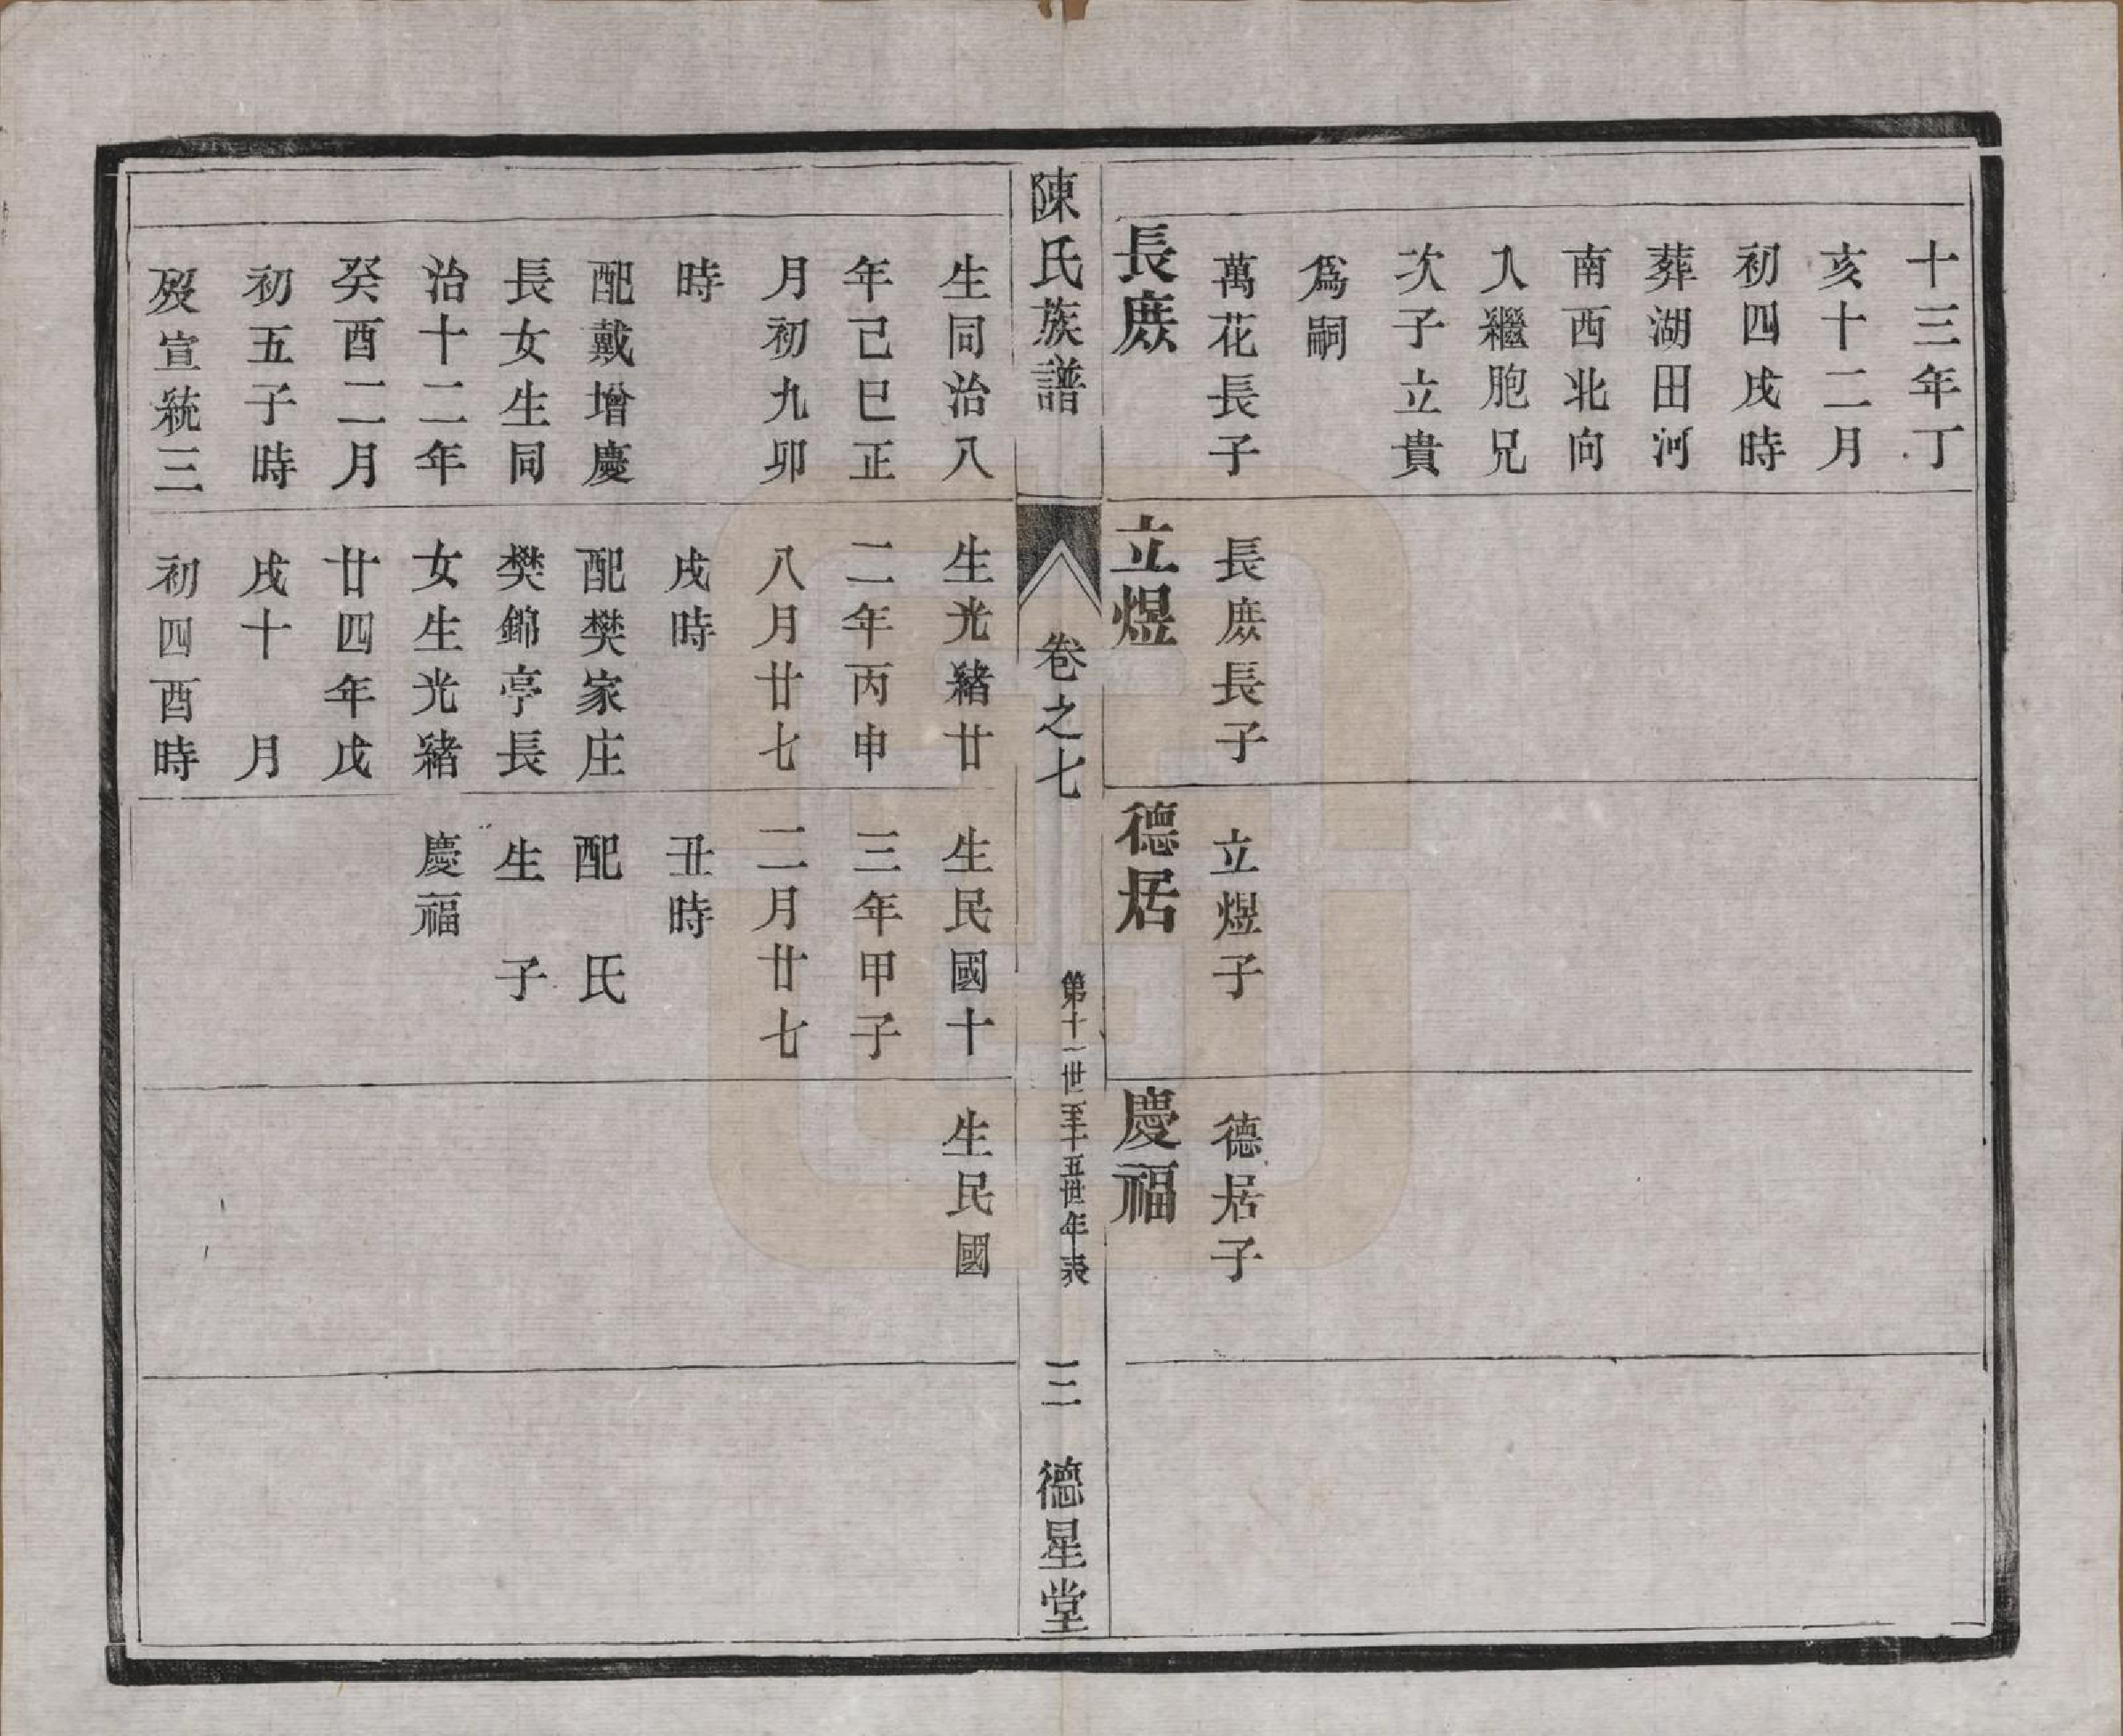 十三年丁
亥十二月
初四戌時
葬湖田河
南西北向
入繼胞兄
次子立貴
爲嗣
萬花長子
長庶
長庶長子
立煜
立煜子
德居
德居子
慶福
陳氏族譜
卷之七
第十一世至十五世年表
三
德星堂
生同治八
年己巳正
月初九卯
時
配戴增慶
長女生同
治十二年
癸酉二月
初五子時
歿宣統三
生光緒廿
二年丙申
八月廿七
戌時
配樊家庄
樊錦亭長
女生光緒
廿四年戊
戌十 月
初四酉時
生民國十
三年甲子
二月廿七
丑時
配 氏
生 子
慶福
生民國